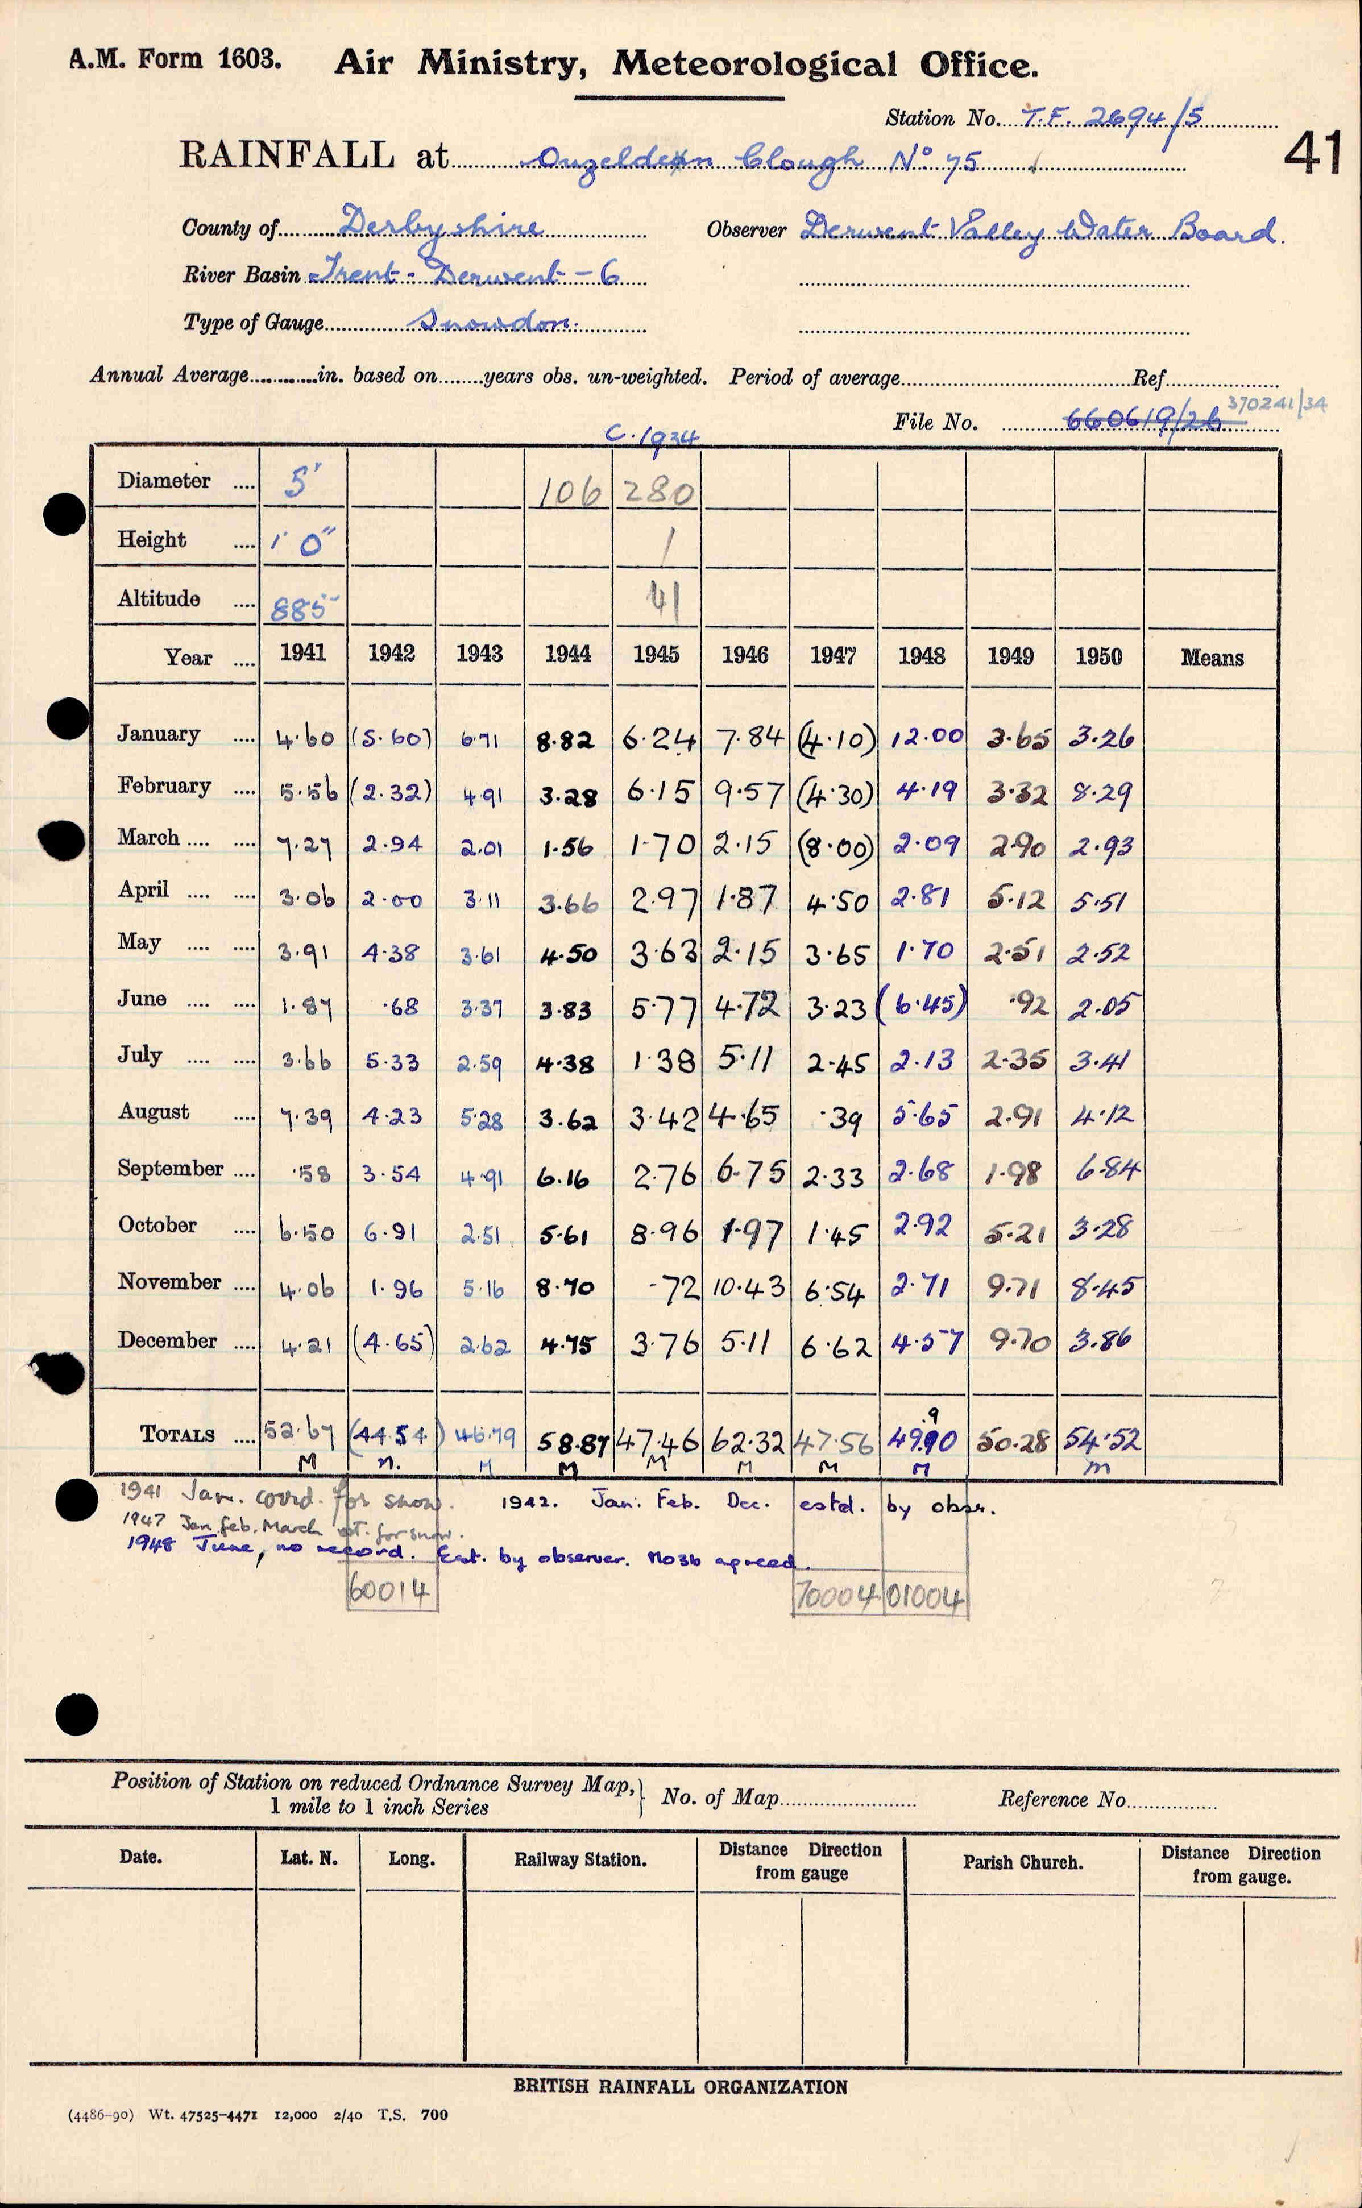 A.M. Form 1603. Air Ministry, Meteorological Office.
Station No. T.F. 2694/5
RAINFALL at Ouzelden Clough No 75
41
County of Derbyshire Observer Derwent Valley Water Board.
River Basin Trent - Derwent - 6
Type of Gauge Snowdon.
Annual Average in. based on years obs. un-weighted. Period of average Ref
File No. 660619/26 370241/34
C. 1934
Diameter 5" 106 280
Height 1' 0" 1
Altitude 885 41
Year 1941 1942 1943 1944 1945 1946 1947 1948 1949 1950 Means
January 4.60 (5.60) 6.71 8.82 6.24 7.84 (4.10) 12.00 3.65 3.26
February 5.56 (2.32) 4.91 3.28 6.15 9.57 (4.30) 4.19 3.32 8.29
March 7.27 2.94 2.01 1.56 1.70 2.15 (8.00) 2.09 2.90 2.93
April 3.06 2.00 3.11 3.66 2.97 1.87 4.50 2.81 5.12 5.51
May 3.91 4.38 3.61 4.50 3.63 2.15 3.65 1.70 2.51 2.52
June 1.87 .68 3.37 3.83 5.77 4.72 3.23 (6.45) .92 2.05
July 3.66 5.33 2.59 4.38 1.38 5.11 2.45 2.13 2.35 3.41
August 7.39 4.23 5.28 3.62 3.42 4.65 .39 5.65 2.91 4.12
September .58 3.54 4.91 6.16 2.76 6.75 2.33 2.68 1.98 6.84
October 6.50 6.91 2.51 5.61 8.96 1.97 1.45 2.92 5.21 3.28
November 4.06 1.96 5.16 8.70 .72 10.43 6.54 2.71 9.71 8.45
December 4.21 (4.65) 2.62 4.75 3.76 5.11 6.62 4.57 9.70 3.86
TOTALS 52.67 (44.54) 46.79 58.87 47.46 62.32 47.56 49.90 50.28 54.52
M M. M M M M M M M
1941 Jan. coord. for snow. 1942. Jan. Feb. Dec. estd. by obsr.
1947 Jan, feb, March est. for snow.
1948 June, no record. Est. by observer. Mo3b agreed.
60014 70004 01004
Position of Station on reduced Ordnance Survey Map, No. of Map Reference No.
1 mile to 1 inch Series
Date. Lat. N. Long. Railway Station. Distance Direction from gauge Parish Church. Distance Direction from gauge.
BRITISH RAINFALL ORGANIZATION
(4486-90) Wt. 47525-4471 12,000 2/40 T.S. 700